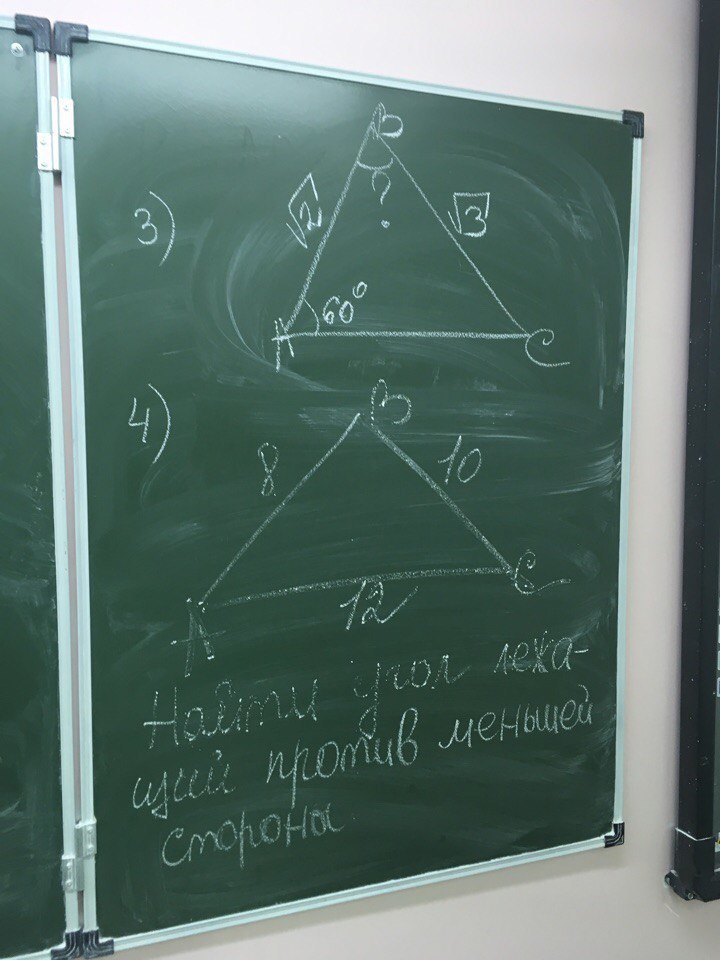 3)
B
√2
?
√3
60°
A
C
4)
B
8
10
A
12
C
Найти угол лежа-
щий против меньшей
стороны